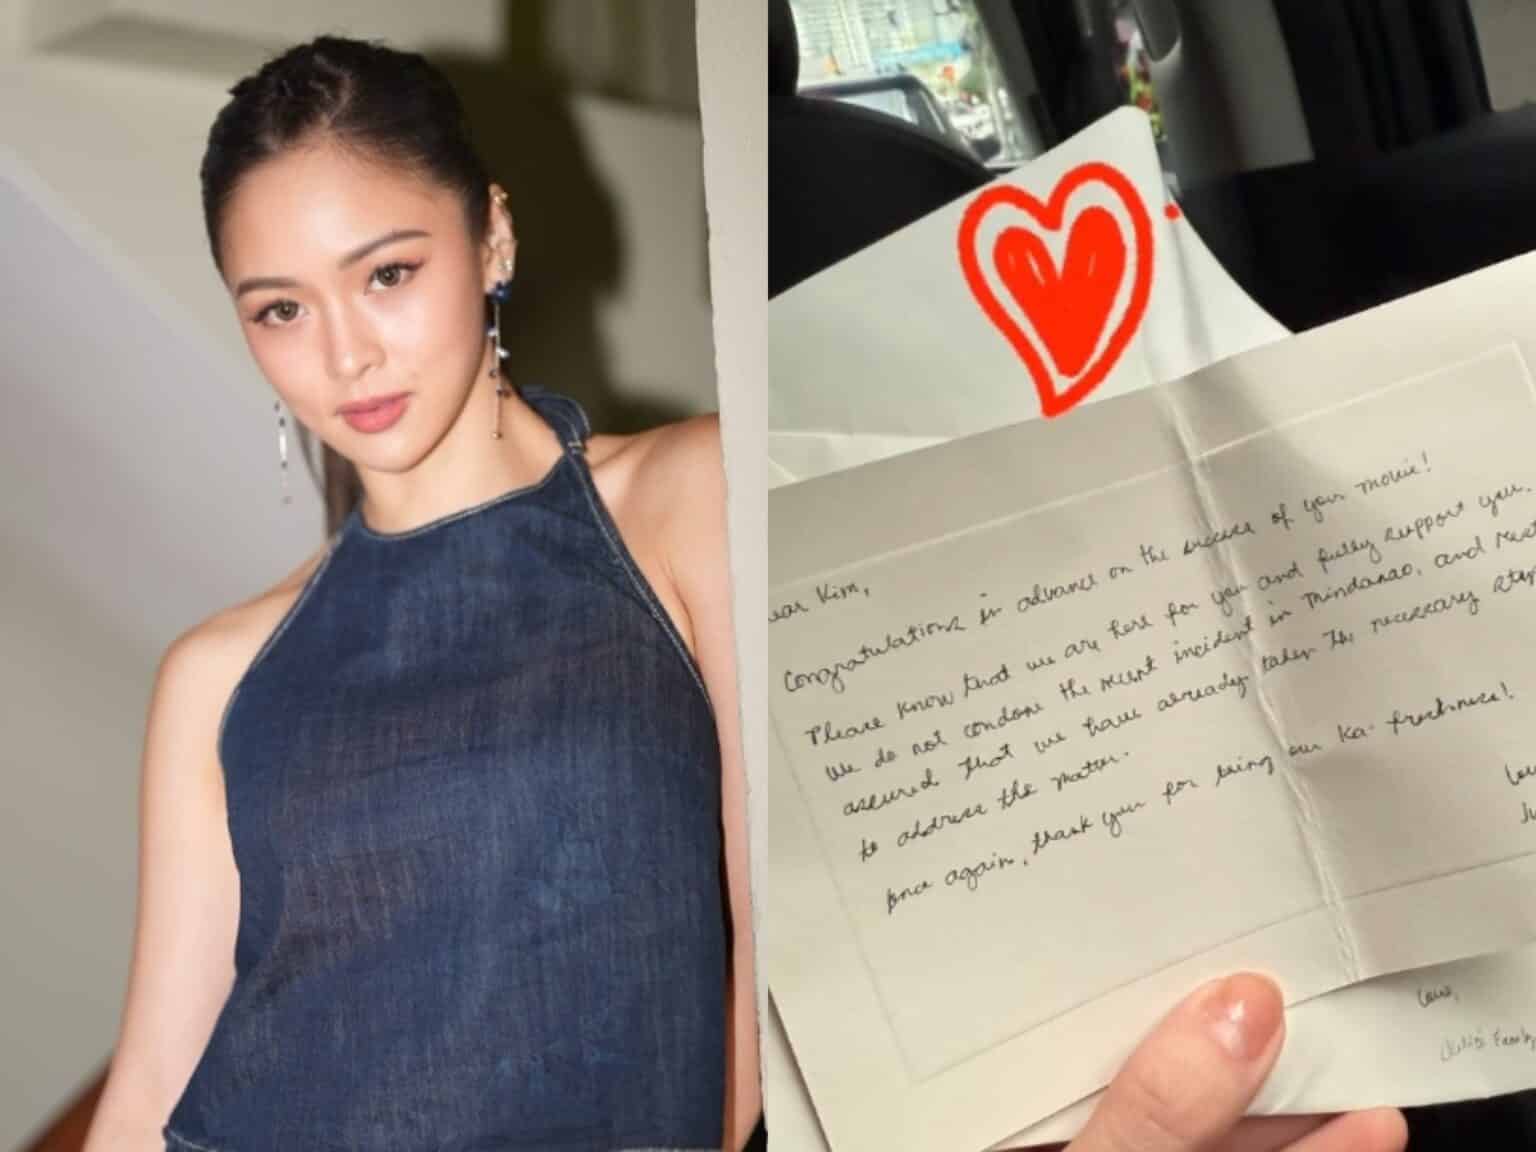 ear Kim,
Congratulations in advance on the success of your movie!
Please know that we are here for you and fully support you.
We do not condone the recent incident in Mindanao, and rest
assured that we have already taken the necessary step
to address the matter.
Once again, thank you for being our Ka-freshness!
Love,